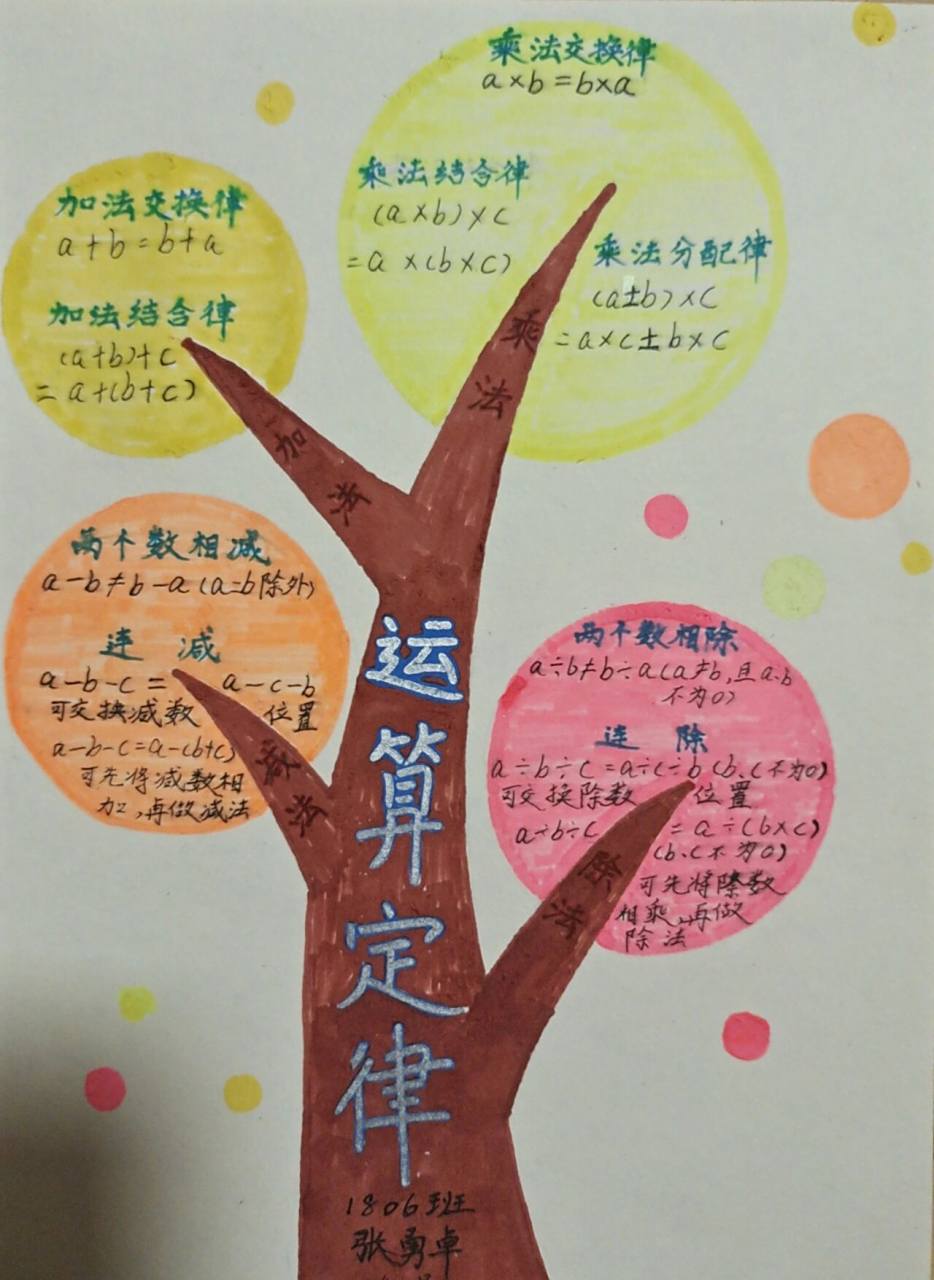 乘法交换律
a×b=b×a
乘法结合律
(a×b)×c
=a×(b×c)
乘法分配律
(a±b)×c
=a×c±b×c
乘法
加法交换律
a+b=b+a
加法结合律
(a+b)+c
=a+(b+c)
加法
两个数相减
a-b≠b-a(a=b除外)
连 减
a-b-c= a-c-b
可交换减数 位置
a-b-c=a-(b+c)
可先将减数相
加,再做减法
减法
两个数相除
a÷b≠b÷a(a≠b,且a、b
不为0)
连 除
a÷b÷c=a÷c÷b(b、c不为0)
可交换除数 位置
a÷b÷c =a÷(b×c)
(b、c不为0)
可先将除数
相乘,再做
除法
除法
运算定律
1806班
张勇卓